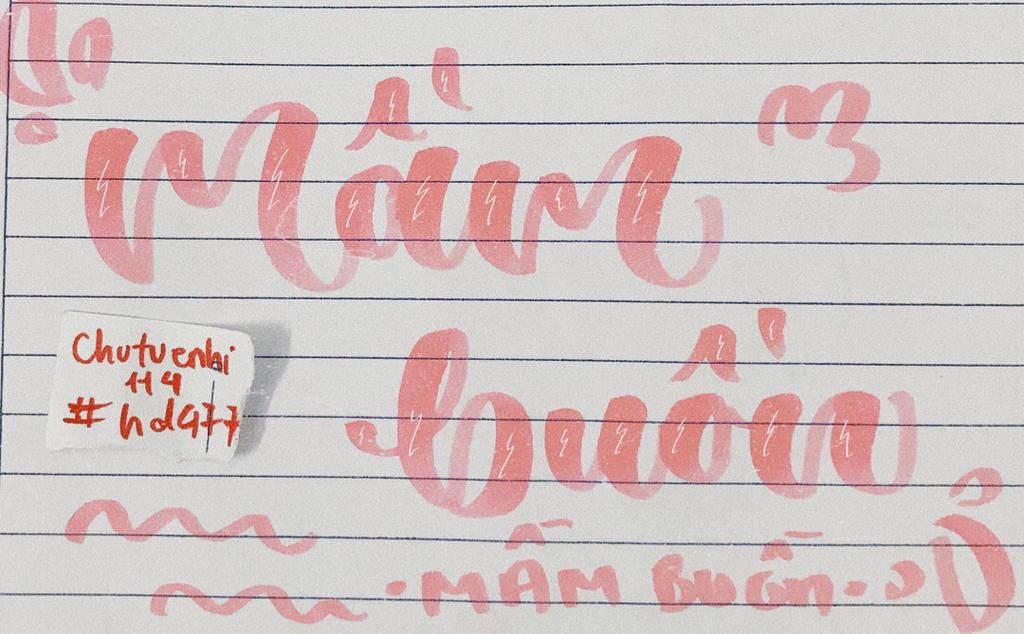 Mầm
buồn
Chutuenhi
114
#hd477
·MẦM BUỒN·